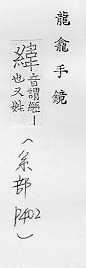 龍龕手鏡
緯音謂經丨
也又姓
(糸部
P402)